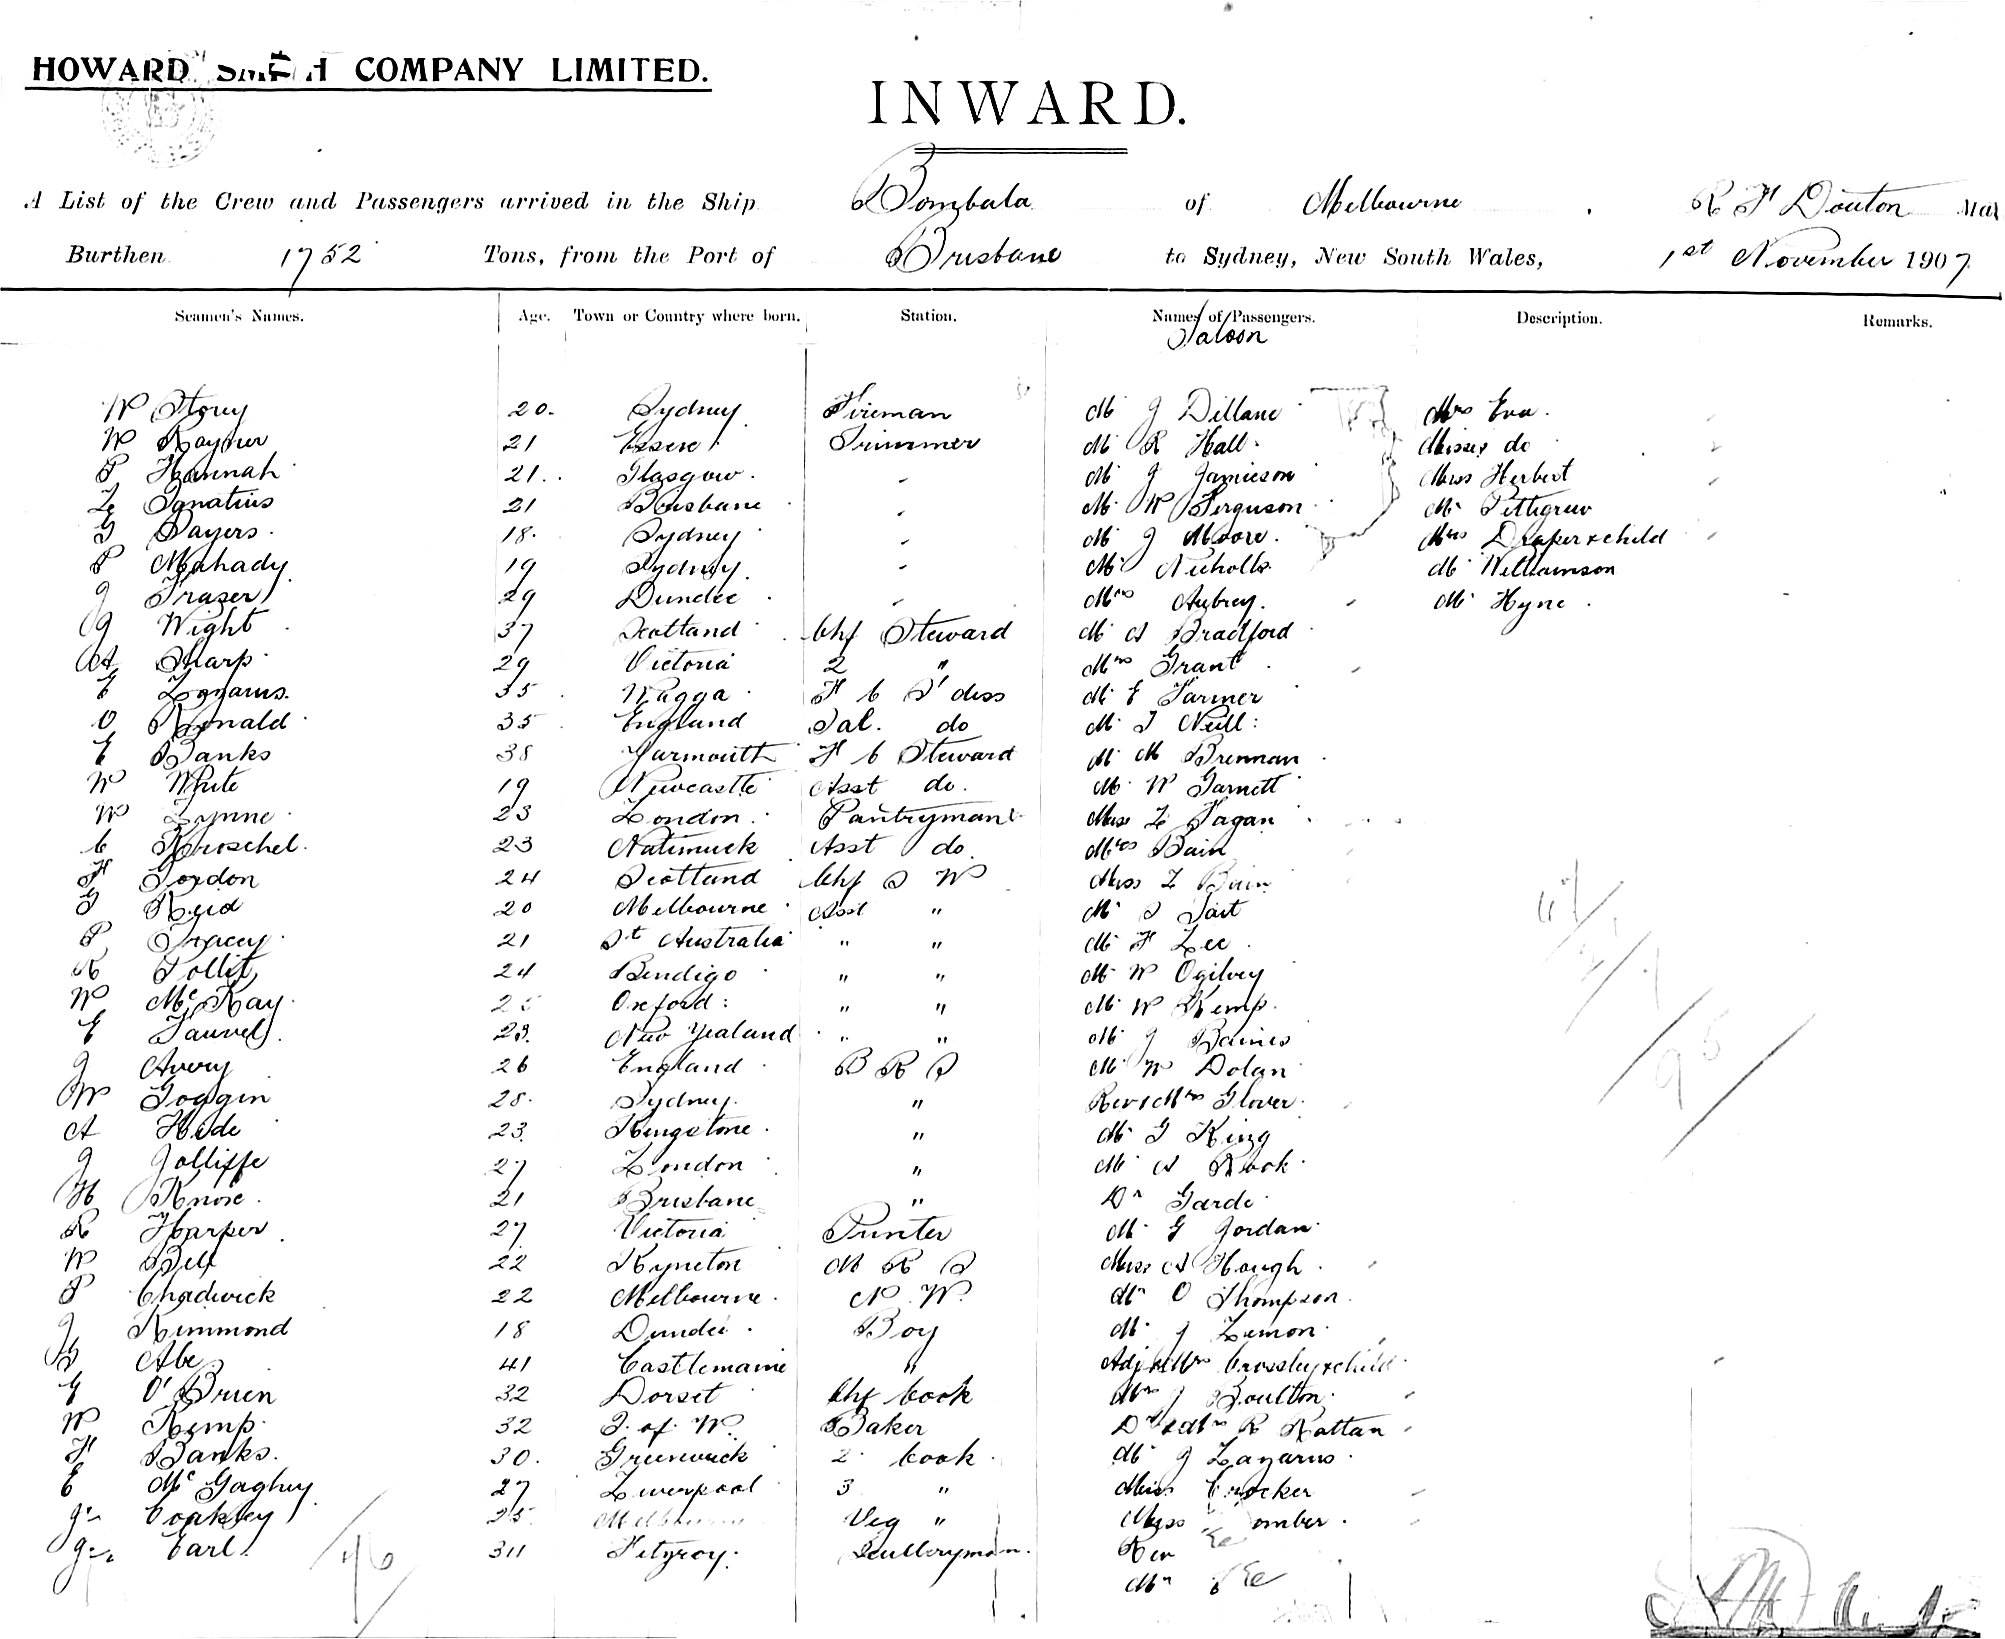 HOWARD SMITH COMPANY LIMITED.
INWARD.
A List of the Crew and Passengers arrived in the Ship Bombala of Melbourne. R F Douton Mas
Burthen 1752 Tons, from the Port of Brisbane to Sydney, New South Wales, 1st November 1907
Seamen's Names. Age. Town or Country where born. Station. Names of Passengers. Description. Remarks.
Saloon
W Storey 20. Sydney Fireman Mr J Dillane Mrs Eva.
W Rayner 21 Essex Trimmer Mr R Hall. Misses do
P Hannah 21. Glasgow. " Mr J Jamieson Miss Herbert
L Ignatius 21 Brisbane " Mr W Ferguson Mr Pettigrew
G Sayers. 18. Sydney " Mr J Moore. Mrs Draper & child
P Mahady 19 Sydney. " Mr Nicholls Mr Williamson
J Fraser 29 Dundee " Mrs Aubrey. Mr Hyne.
J Wight 37 Scotland Chf Steward Mr A Bradford
A Sharp 29 Victoria 2 " Mrs Grant
E Lazarus. 35 Wagga F C S'dess Mr E Farmer
O Ronald 35 England Sal. do Mr T Neill:
E Banks 38 Yarmouth F C Steward Mr M Brennan
W White 19 Newcastle Asst do. Mr W Garnett
W Lynne 23 London. Pantryman Miss L Fagan
C Kroschel. 23 Natimuck Asst do. Mrs Bain
F Gordon 24 Scotland Chf S W Miss L Bain
G Reid 20 Melbourne Asst " Mr S Tait
P Tracey 21 St Australia " " Mr F Lee.
R Pollit 24 Bendigo " " Mr W Ogilvey
W McKay. Oxford: " " Mr W Kemp.
E Sauvel. 23. New Zealand " " Mr J Baines
J Avery 26 England B R S Mr W Dolan
W Goggin 28. Sydney. " Rev & Mrs Glover.
A Hide 23. Kingstone. " Mr G King
J Jolliffe 27 London " Mr A Rook.
H Knose. 21 Brisbane " Dr Garde
R Harper 27 Victoria Printer Mr G Jordan
W Bell 22 Kyneton M R S Miss A Hough.
P Chadwick 22 Melbourne. N. W. Mr O Thompson.
J Kimmond 18 Dundee. Boy Mr J Lemon
B Abe 41 Castlemaine " Adj & Mrs Crossley & child
E O'Brien 32 Dorset Chf Cook Mrs J Boulton
W Kemp. 32 I. of W. Baker Dr & Mrs R Rattan
F Banks. 30. Greenwich 2 Cook Mr J Lazarus
E McGaghey 27 Liverpool 3 " Miss Crocker
J Coakley 25 Melbourne Veg " Miss omber.
J Earl. 34 Fitzroy. Sculleryman. Rev
Mr
46
95